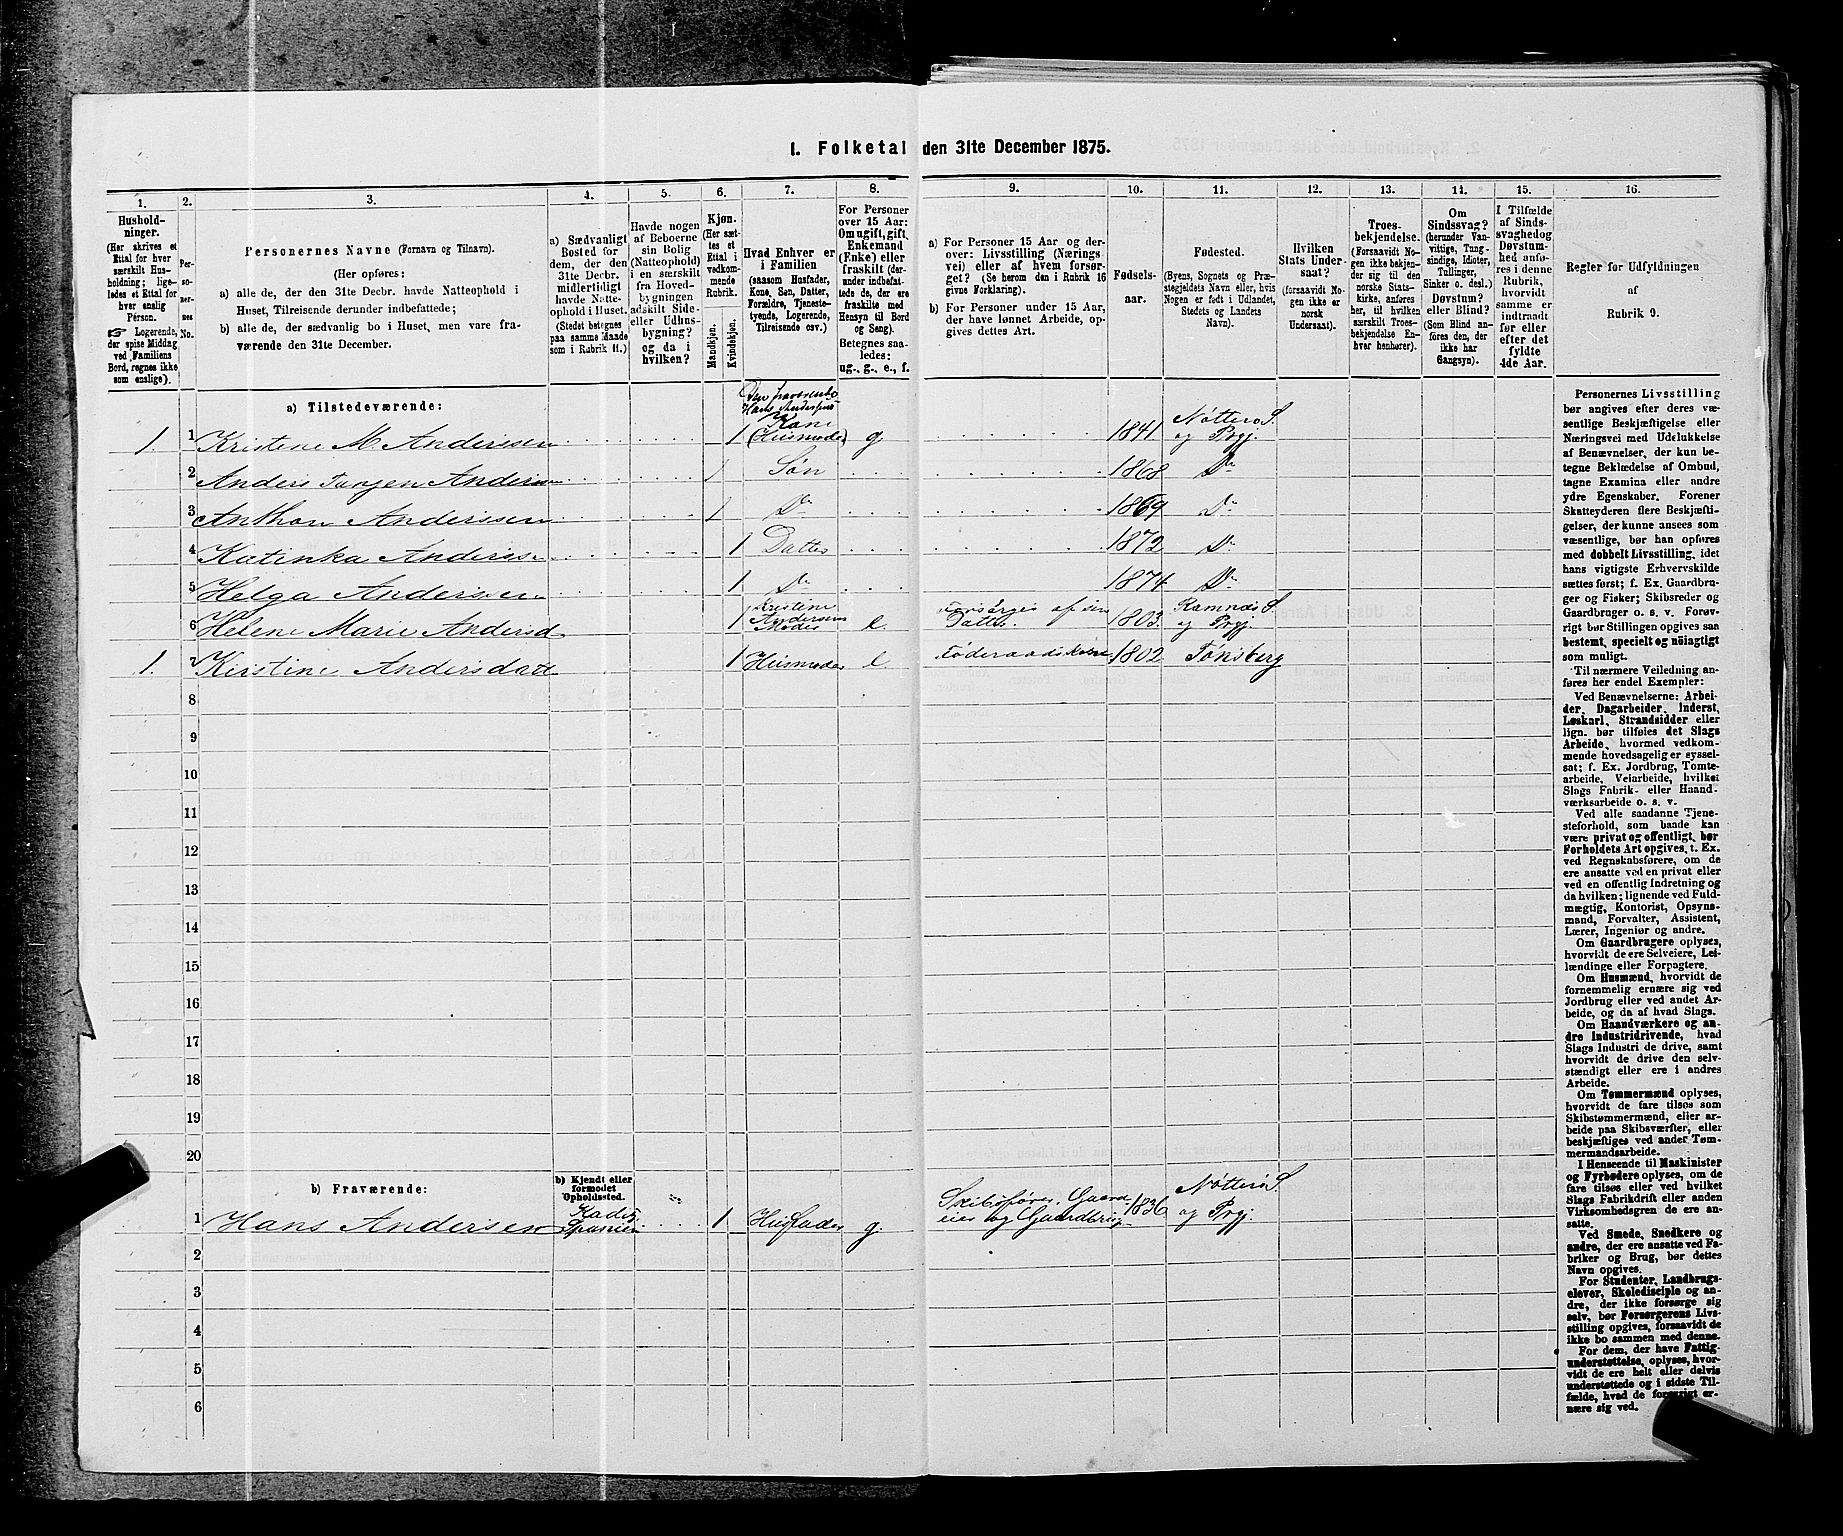 I. Folketal den 31te December 1875.
1.
Hushold-
ninger.
(Her skrives et
Ettal for hver
særskilt Hus-
holdning; lige-
ledes et Ettal for
hver enslig
Person.
☞ Logerende,
der spise Middag
ved Familiens
Bord, regnes ikke
som enslige).
2.
Per-
so-
ner-
nes
No.
3.
Personernes Navne (Fornavn og Tilnavn).
(Her opføres:
a) alle de, der den 31te Decbr. havde Natteophold i
Huset, Tilreisende derunder indbefattede;
b) alle de, der sædvanlig bo i Huset, men vare fra-
værende den 31te December.
4.
a) Sædvanligt
Bosted for
dem, der den
31te Decbr.
midlertidigt
havde Natte-
ophold i Huset.
(Stedet betegnes
paa samme Maade
som i Rubrik 11.)
5.
Havde nogen
af Beboerne
sin Bolig
(Natteophold)
i en særskilt
fra Hoved-
bygningen
adskilt Side-
eller Udhus-
bygning?
og da i
hvilken?
6.
Kjøn.
(Her sæt-
tes et
Ettal i
vedkom-
mende
Rubrik.
Mandkjøn.
Kvindekjøn.
7.
Hvad Enhver er
i Familien
(saasom Husfader,
Kone, Søn, Datter,
Forældre, Tjeneste-
tyende, Logerende,
Tilreisende osv.)
8.
For Personer
over 15 Aar:
Om ugift, gift,
Enkemand
(Enke) eller
fraskilt (der-
under indbefat-
tede de, der ere
fraskilte med
Hensyn til Bord
og Seng).
Betegnes saa-
ledes:
ug., g., e., f.
9.
a) For Personer 15 Aar og der-
over: Livsstilling (Nærings-
vei) eller af hvem forsør-
get? (Se herom den i Rubrik 16
givne Forklaring).
b) For Personer under 15 Aar,
der have lønnet Arbeide, op-
gives dettes Art.
10.
Fødsels-
aar.
11.
Fødested.
(Byens, Sognets og Præ-
stegjeldets Navn eller, hvis
Nogen er født i Udlandet,
Stedets og Landets
Navn).
12.
Hvilken
Stats Under-
saat?
(forsaavidt No-
gen ikke er
norsk
Undersaat).
13.
Troes-
bekjendelse.
(Forsaavidt No-
gen ikke bekjen-
der sig til den
norske Stats-
kirke, anføres
her, til hvilken
særskilt Troes-
bekjendelse En-
hver henhører).
14.
Om
Sindssvag?
(herunder Van-
vittige, Tung-
sindige, Idioter,
Tullinger,
Sinker o. desl.)
Døvstum?
eller Blind?
(Som Blind an-
føres den, der
ikke har
Gangsyn).
15.
I Tilfælde
af Sinds-
svaghed og
Døvstum-
hed anfø-
res i denne
Rubrik,
hvorvidt
samme er
indtraadt
før eller
efter det
fyldte
4de Aar.
16.
Regler for Udfyldningen
af
Rubrik 9.
a) Tilstedeværende:
1. 1 Kristene M. Anderssen 1 Den fraværende Hans Anderssens Kone (Husmoder) g 1841 Nøtterø S. og Prgj.
2 Anders Jørgen Anderssen 1 Søn 1868 Do
3 Anthon Anderssen 1 Do 1869 Do
4 Katinka Anderssen 1 Datter 1872 Do
5 Helga Anderssen 1 Do 1874 Do
6 Helene Marie Andersd 1 Kristine Andersens Moder e. Forsørges af sin Datter. 1803 Ramnæs S. og Prgj.
1. 7 Kirstine Andersdatt 1 Husmoder e Føderaadskone 1802 Tønsberg
8
9
10
11
12
13
14
15
16
17
18
19
20
b) Fraværende:
b) Kjendt eller
formodet
Opholdssted.
1 Hans Andersen Kadix Spanien 1 Husfader g. Skibsfører, Gaardeier og Gaardbrug 1836 Nøtterø S. og Prgj.
2
3
4
5
6
Personernes Livsstilling
bør angives efter deres væ-
sentlige Beskjæftigelse eller
Næringsvei med Udelukkelse
af Benævnelser, der kun be-
tegne Beklædelse af Ombud,
tagne Examina eller andre
ydre Egenskaber. Forener
Skatteyderen flere Beskjæfti-
gelser, der kunne ansees som
væsentlige, bør han opføres
med dobbelt Livsstilling, idet
hans vigtigste Erhvervskilde
sættes først; f. Ex. Gaardbru-
ger og Fisker; Skibsreder og
Gaardbruger o. s. v. Forøv-
rigt bør Stillingen opgives saa
bestemt, specielt og nøiagtigt
som muligt.
Til nærmere Veiledning an-
føres her endel Exempler:
Ved Benævnelserne: Arbei-
der, Dagarbeider, Inderst,
Løskarl, Strandsidder eller
lign. bør tilføies det Slags
Arbeide, hvormed vedkom-
mende hovedsagelig er syssel-
sat; f. Ex. Jordbrug, Tomte-
arbeide, Veiarbeide, hvilket
Slags Fabrik- eller Haand-
værksarbeide o. s. v.
Ved alle saadanne Tjene-
steforhold, som baade kan
være privat og offentligt, bør
Forholdets Art opgives, t. Ex.
ved Regnskabsførere, om de
ere ansatte ved en privat eller
ved en offentlig Indretning og
da hvilken; lignende ved Fuld-
mægtig, Kontorist, Opsyns-
mand, Forvalter, Assistent,
Lærer, Ingeniør og andre.
Om Gaardbrugere oplyses,
hvorvidt de ere Selveiere, Lei-
lændinge eller Forpagtere.
Om Husmænd, hvorvidt de
fornemmelig ernære sig ved
Jordbrug eller ved andet Ar-
beide, og da af hvad Slags.
Om Haandværkere og an-
dre Industridrivende, hvad
Slags Industri de drive, samt
hvorvidt de drive den selv-
stændigt eller ere i andres
Arbeide.
Om Tømmermænd oplyses,
hvorvidt de fare tilsøs som
Skibstømmermænd, eller ar-
beide paa Skibsværfter, eller
beskjæftiges ved andet Tøm-
mermandsarbeide.
I Henseende til Maskinister
og Fyrbødere oplyses, om de
fare tilsøs eller ved hvilket
Slags Fabrikdrift eller anden
Virksomhedsgren de ere an-
satte.
Ved Smede, Snedkere og
andre, der ere ansatte ved Fa-
briker og Brug, bør dettes
Navn opgives.
For Studenter, Landbrugs-
elever, Skoledisciple og an-
dre, der ikke forsørge sig
selv, bør Forsørgerens Livs-
stilling opgives, forsaavidt de
ikke bo sammen med denne.
For dem, der have Fattig-
understøttelse, oplyses, hvor-
vidt de ere helt eller delvis
understøttede og i sidste Til-
fælde, hvad de forøvrigt er-
nære sig ved.